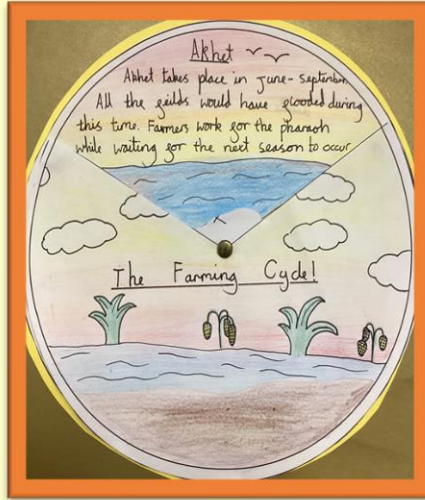 Akhet
Akhet takes place in June - September
All the feilds would have flooded during
this time. Farmers work for the pharaoh
while waiting for the next season to occur
The Farming Cycle!